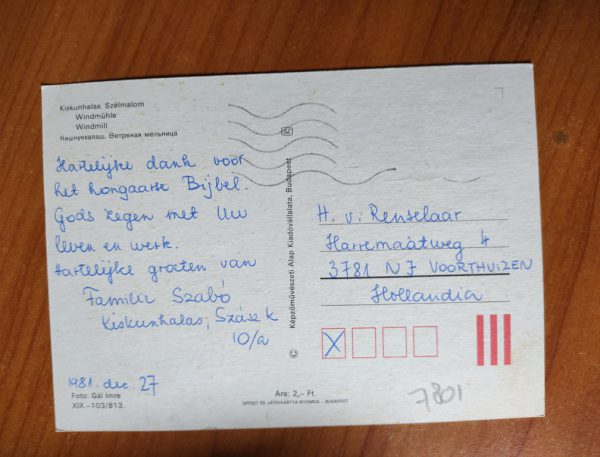 Kiskunhalas. Szélmalom
Windmühle
Windmill
Кишкунхалаш. Ветряная мельница
Hartelijke dank voor
het hongaarse Bijbel.
Gods zegen met Uw
leven en werk.
Hartelijke groeten van
Familie Szabó
Kiskunhalas, Szász k
10/a
1981. dec. 27
Foto: Gál Imre
XIX.–103/813.
SZ
Képzőművészeti Alap Kiadóvállalata, Budapest
©
H. v. Renselaar
Harremaatweg 4
3781 NJ VOORTHUIZEN
Hollandia
X
Ára: 2,– Ft
OFFSET ÉS JÁTÉKKÁRTYA NYOMDA – BUDAPEST
7801